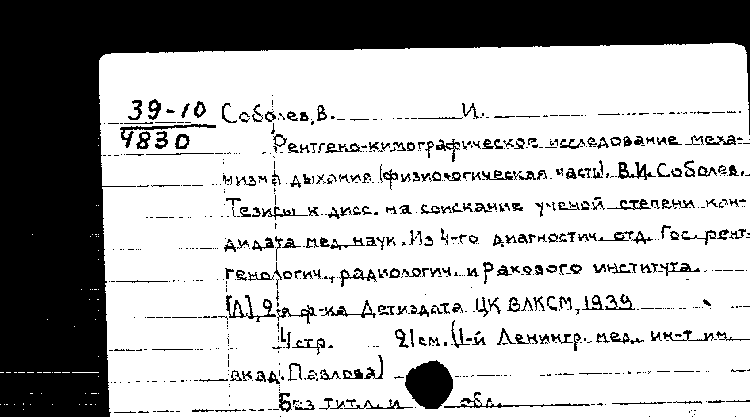 39-10 Соболев, В. И.
4830
Рентгено-кимографическое исследование меха-
низма дыхания (физиологическая часть). В.И. Соболев.
Тезисы к дисс. на соискание ученой степени кан-
дидата мед. наук. Из 4-го диагностич. отд. Гос. рент-
генологич., радиологич. и ракового института.
[Л], 2-я ф-ка Детиздата ЦК ВЛКСМ, 1939
4 стр. 21 см. (1-й Ленингр. мед. ин-т им.
акад. Павлова)
Без тит. л. и обл.